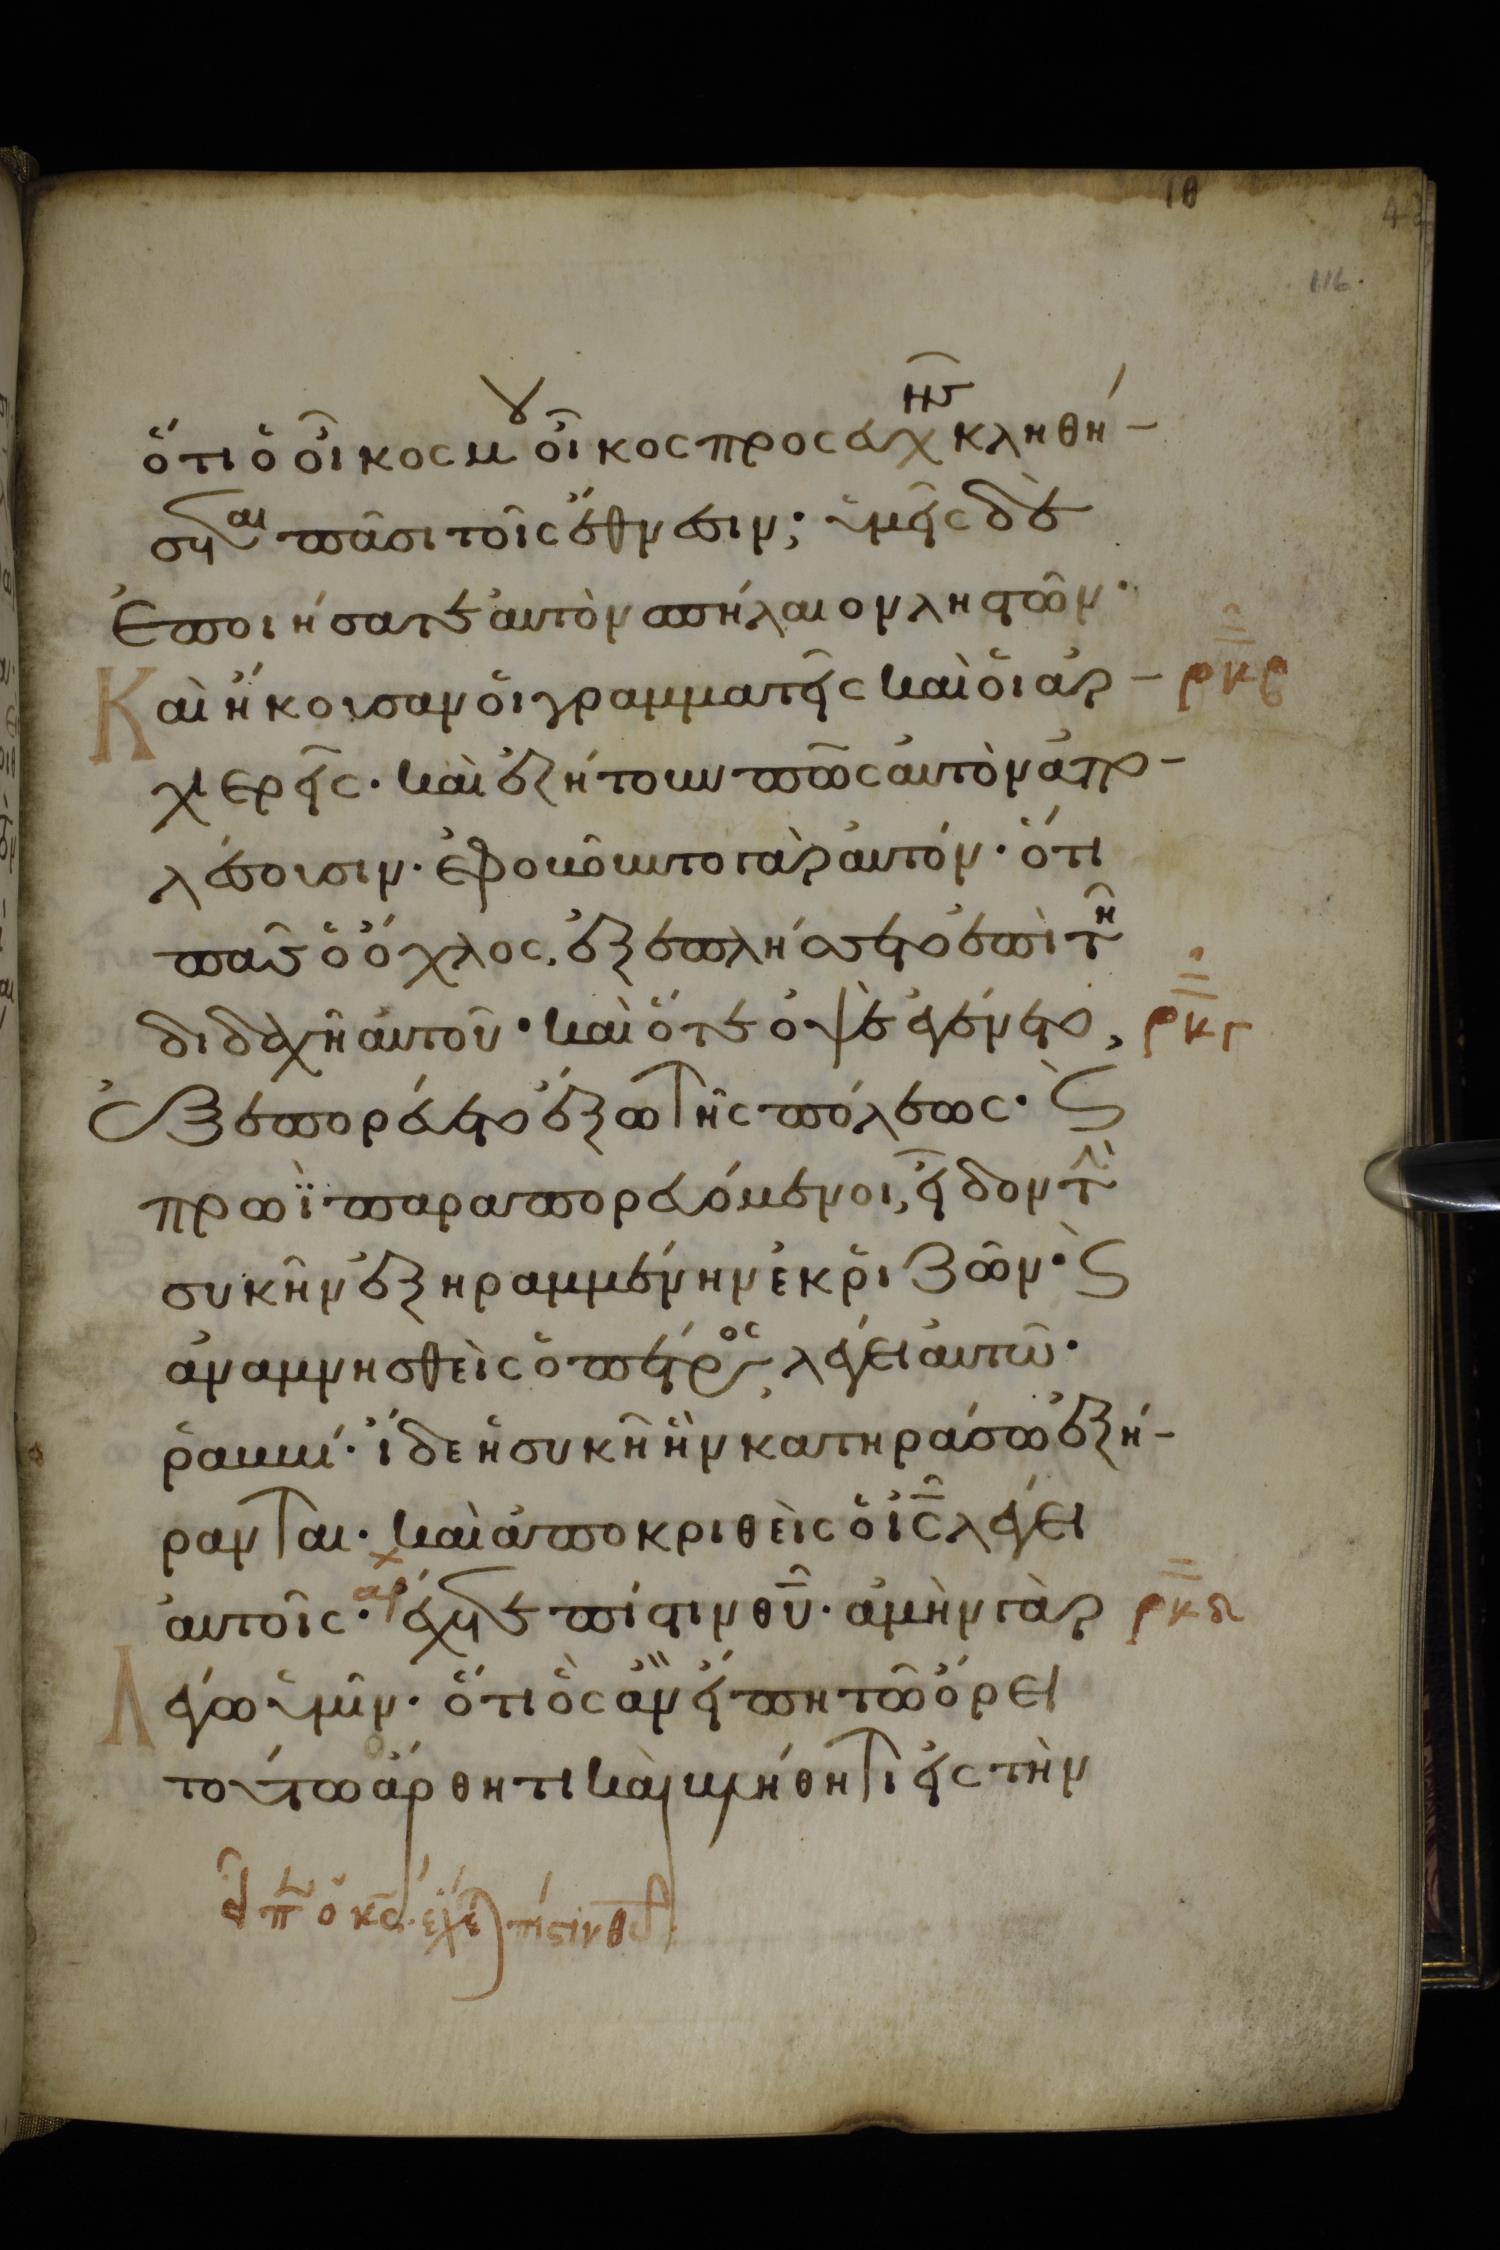 ιθ
42
116.
ὅτι ὁ οἶκός μου οἶκος προσευχῆς κληθή-
σεται πᾶσι τοῖς ἔθνεσιν; ὑμεῖς δὲ
ἐποιήσατε αὐτὸν σπήλαιον ληστῶν·
Καὶ ἤκουσαν οἱ γραμματεῖς καὶ οἱ ἀρ- ρκβ
χιερεῖς· καὶ ἐζήτουν πῶς αὐτὸν ἀπο-
λέσουσιν· ἐφοβοῦντο γὰρ αὐτόν· ὅτι
πᾶς ὁ ὄχλος, ἐξεπλήσσετο ἐπὶ τῆ
διδαχῆ αὐτοῦ· καὶ ὅτε ὀψὲ ἐγένετο, ρκγ
ἐξεπορεύετο ἔξω τῆς πόλεως· ϛ
πρωῒ παραπορευόμενοι, εἶδον τὴν
συκῆν ἐξηραμμένην ἐκ ῥιζῶν· ϛ
ἀναμνησθεὶς ὁ πέτρος, λέγει αὐτῶ·
ῥαββί· ἴδε ἡ συκῆ ἣν κατηράσω ἐξή-
ρανται· καὶ ἀποκριθεὶς ὁ ις λέγει
αὐτοῖς· αρχ ἔχετε πίστιν θυ· ἀμὴν γὰρ ρκδ
Λέγω ὑμῖν· ὅτι ὃς ἂν εἴπη τῶ ὄρει
τούτω ἄρθητι καὶ βλήθητι εἰς τὴν
εἶπεν ὁ κς· ἔχετε πίστιν θυ